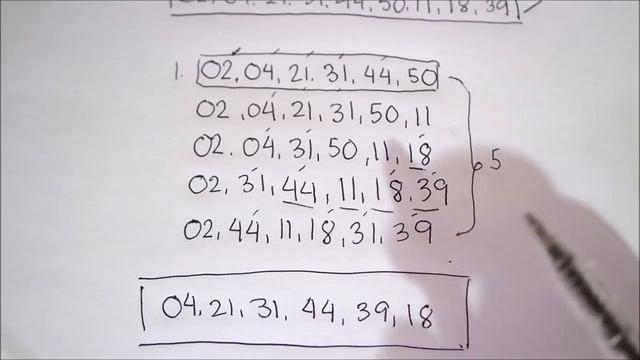 02, 04, 21, 31, 44, 50, 11, 18, 39
1. 02, 04, 21. 31, 44, 50
02, 04, 21, 31, 50, 11
02. 04, 31, 50, 11, 18
5
02, 31, 44, 11, 18. 39
02, 44, 11, 18, 31, 39
04, 21, 31, 44, 39, 18